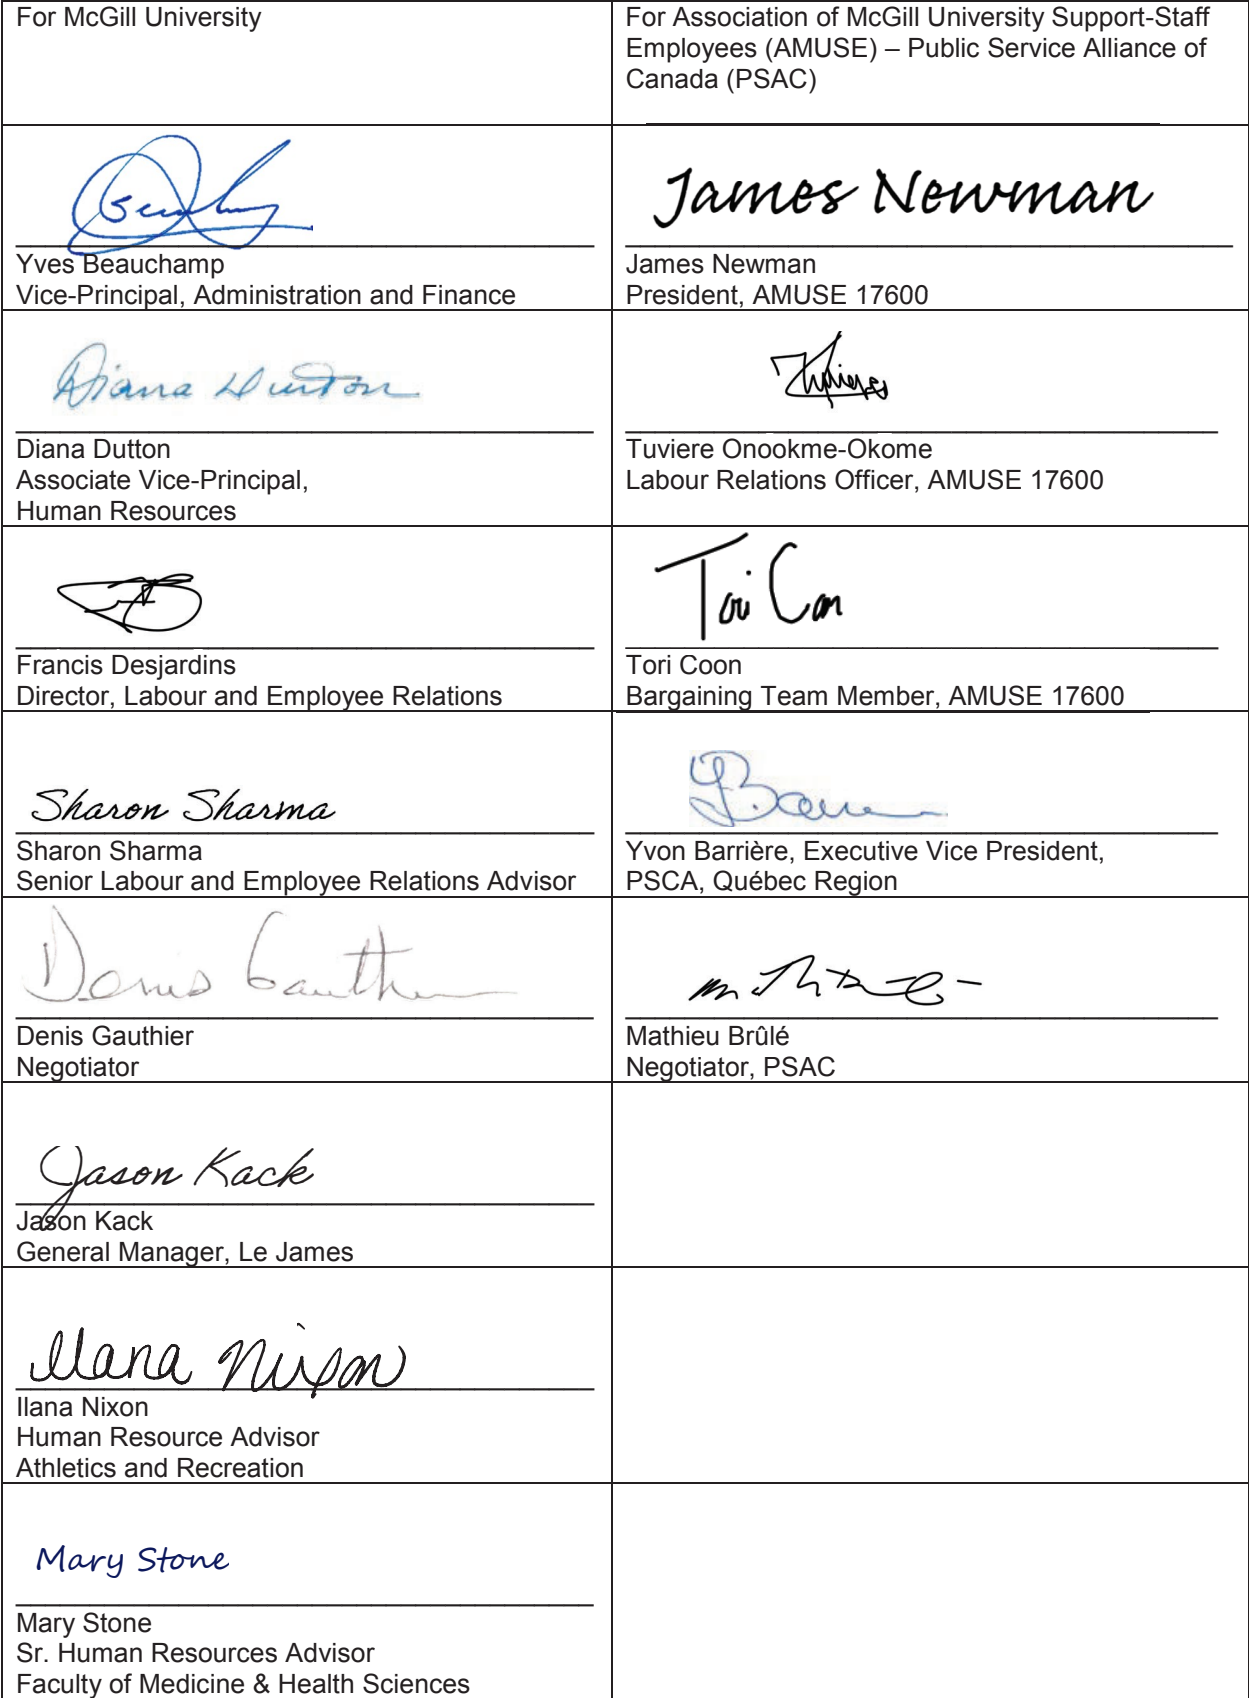 For McGill University
For Association of McGill University Support-Staff
Employees (AMUSE) – Public Service Alliance of
Canada (PSAC)
James Newman
Yves Beauchamp
Vice-Principal, Administration and Finance
James Newman
President, AMUSE 17600
Diana Dutton
Diana Dutton
Associate Vice-Principal,
Human Resources
Tuviere Onookme-Okome
Labour Relations Officer, AMUSE 17600
Francis Desjardins
Director, Labour and Employee Relations
Tori Coon
Tori Coon
Bargaining Team Member, AMUSE 17600
Sharon Sharma
Sharon Sharma
Senior Labour and Employee Relations Advisor
Yvon Barrière, Executive Vice President,
PSCA, Québec Region
Denis Gauthier
Denis Gauthier
Negotiator
Mathieu Brûlé
Negotiator, PSAC
Jason Kack
Jason Kack
General Manager, Le James
Ilana Nixon
Ilana Nixon
Human Resource Advisor
Athletics and Recreation
Mary Stone
Mary Stone
Sr. Human Resources Advisor
Faculty of Medicine & Health Sciences